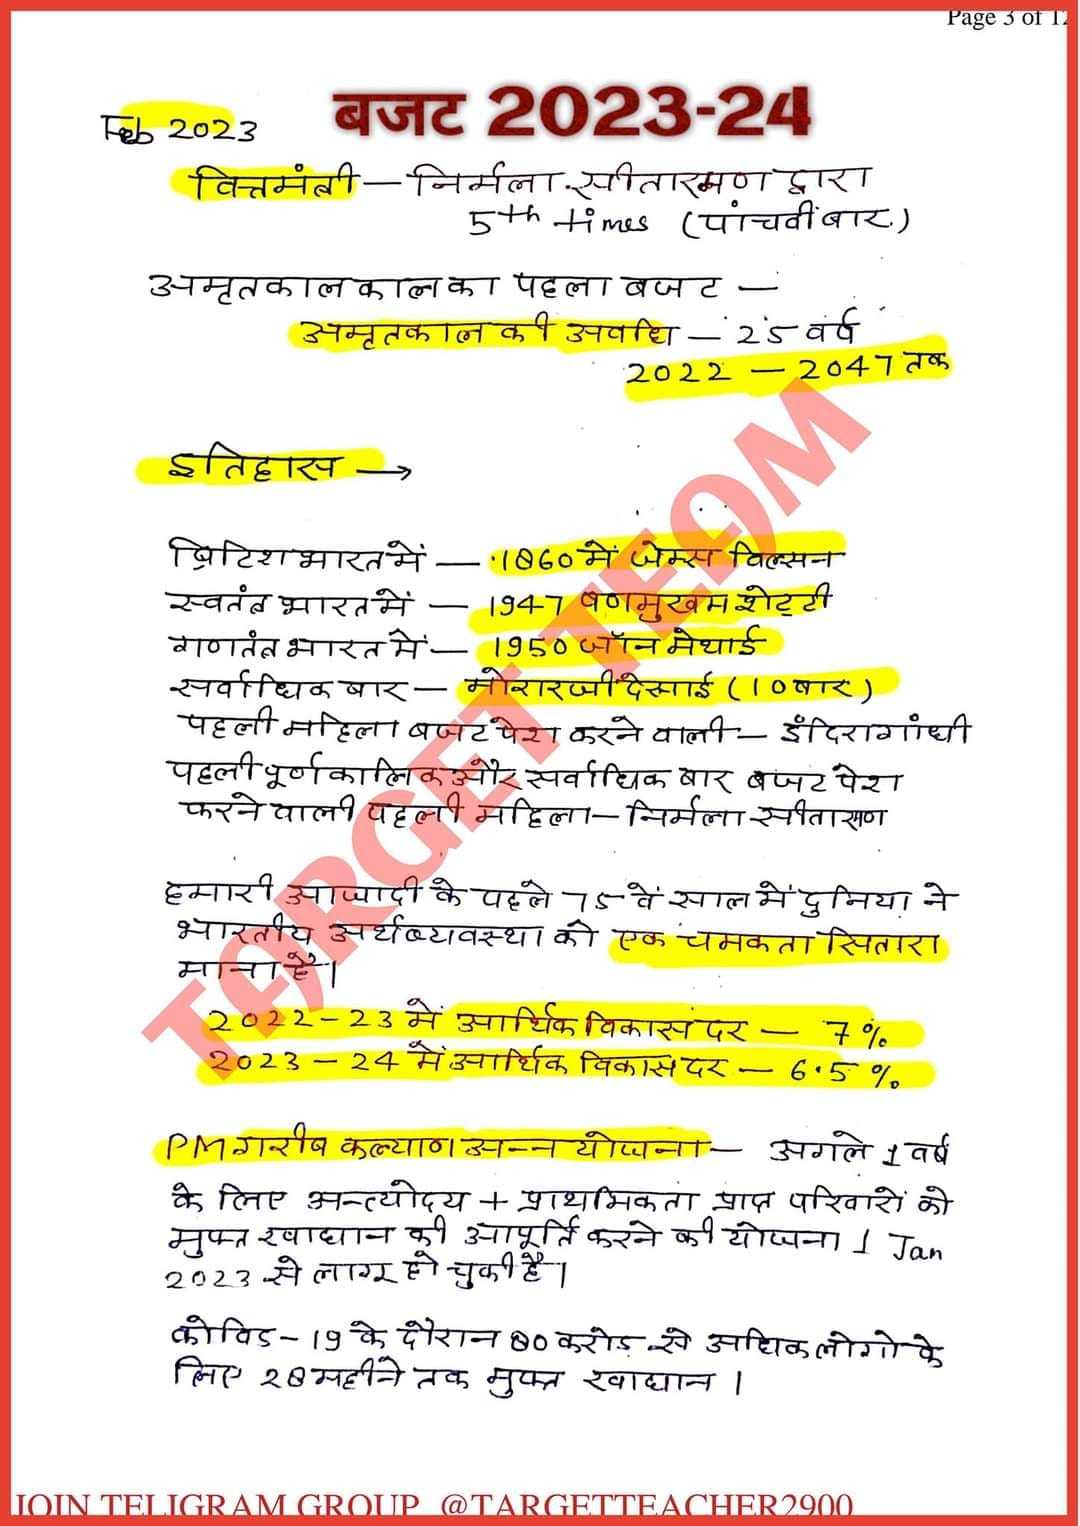 Page 3 of 12
बजट 2023-24
Feb 2023
वित्तमंत्री – निर्मला सीतारमण द्वारा
5th times (पांचवीं बार.)
अमृतकाल काल का पहला बजट –
अमृतकाल की अवधि – 25 वर्ष
2022 – 2047 तक
इतिहास →
ब्रिटिश भारत में – 1860 में जेम्स विल्सन
स्वतंत्र भारत में – 1947 षणमुखम शेट्टी
गणतंत्र भारत में – 1950 जॉन मेथाई
सर्वाधिक बार – मोरारजी देसाई (10 बार)
पहली महिला बजट पेश करने वाली – इंदिरा गांधी
पहली पूर्णकालिक और सर्वाधिक बार बजट पेश
करने वाली पहली महिला – निर्मला सीतारमण
हमारी आजादी के पहले 75 वें साल में दुनिया ने
भारतीय अर्थव्यवस्था को एक चमकता सितारा
माना है।
2022-23 में आर्थिक विकास दर – 7 %
2023 – 24 में आर्थिक विकास दर – 6.5 %
PM गरीब कल्याण अन्न योजना – अगले 1 वर्ष
के लिए अन्त्योदय + प्राथमिकता प्राप्त परिवारों को
मुफ्त खाद्यान की आपूर्ति करने की योजना 1 Jan
2023 से लागू हो चुकी है।
कोविड-19 के दौरान 80 करोड़ से अधिक लोगो के
लिए 28 महीने तक मुफ्त खाद्यान।
TARGET TEAM
JOIN TELIGRAM GROUP @TARGETTEACHER2900